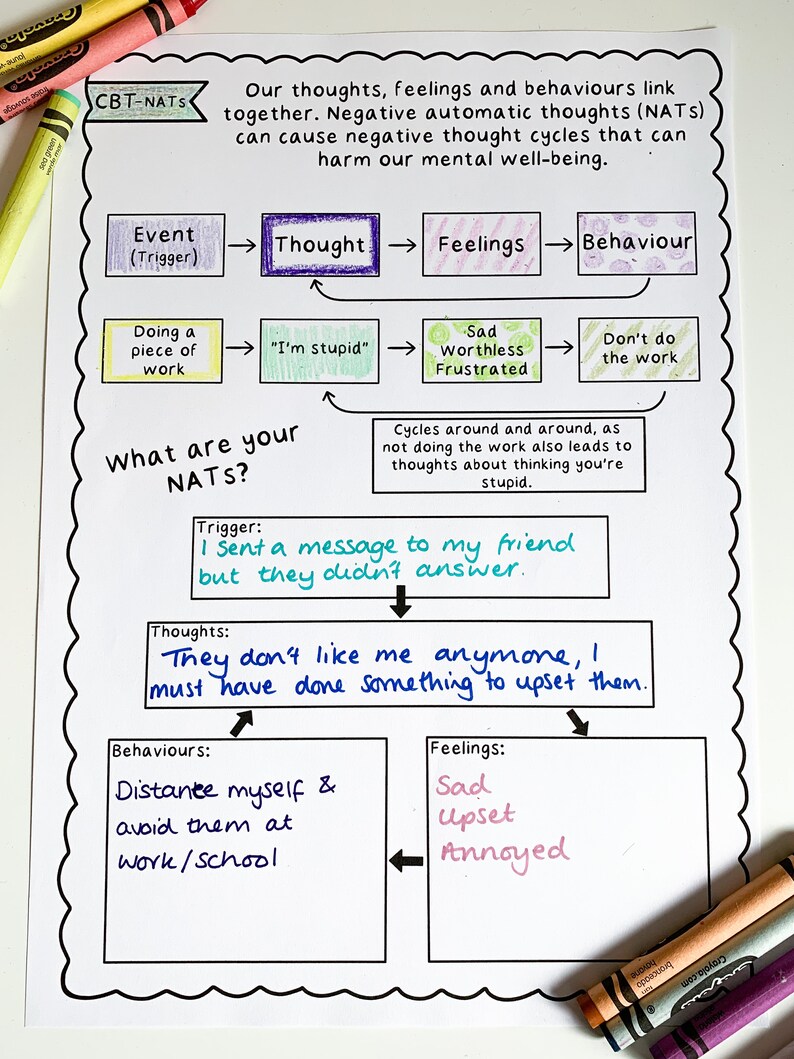 Crayola
jaune
Crayola
fraise sauvage
sea green
verde mar
CBT-NATs
Our thoughts, feelings and behaviours link
together. Negative automatic thoughts (NATs)
can cause negative thought cycles that can
harm our mental well-being.
Event
(Trigger)
Thought
Feelings
Behaviour
Doing a
piece of
work
"I'm stupid"
Sad
Worthless
Frustrated
Don't do
the work
Cycles around and around, as
not doing the work also leads to
thoughts about thinking you're
stupid.
What are your
NATs?
Trigger:
I sent a message to my friend
but they didn't answer.
Thoughts:
They don't like me anymone, I
must have done something to upset them.
Behaviours:
Distance myself &
avoid them at
work/school
Feelings:
Sad
Upset
Annoyed
tan
bronceado
havane
Crayola.com